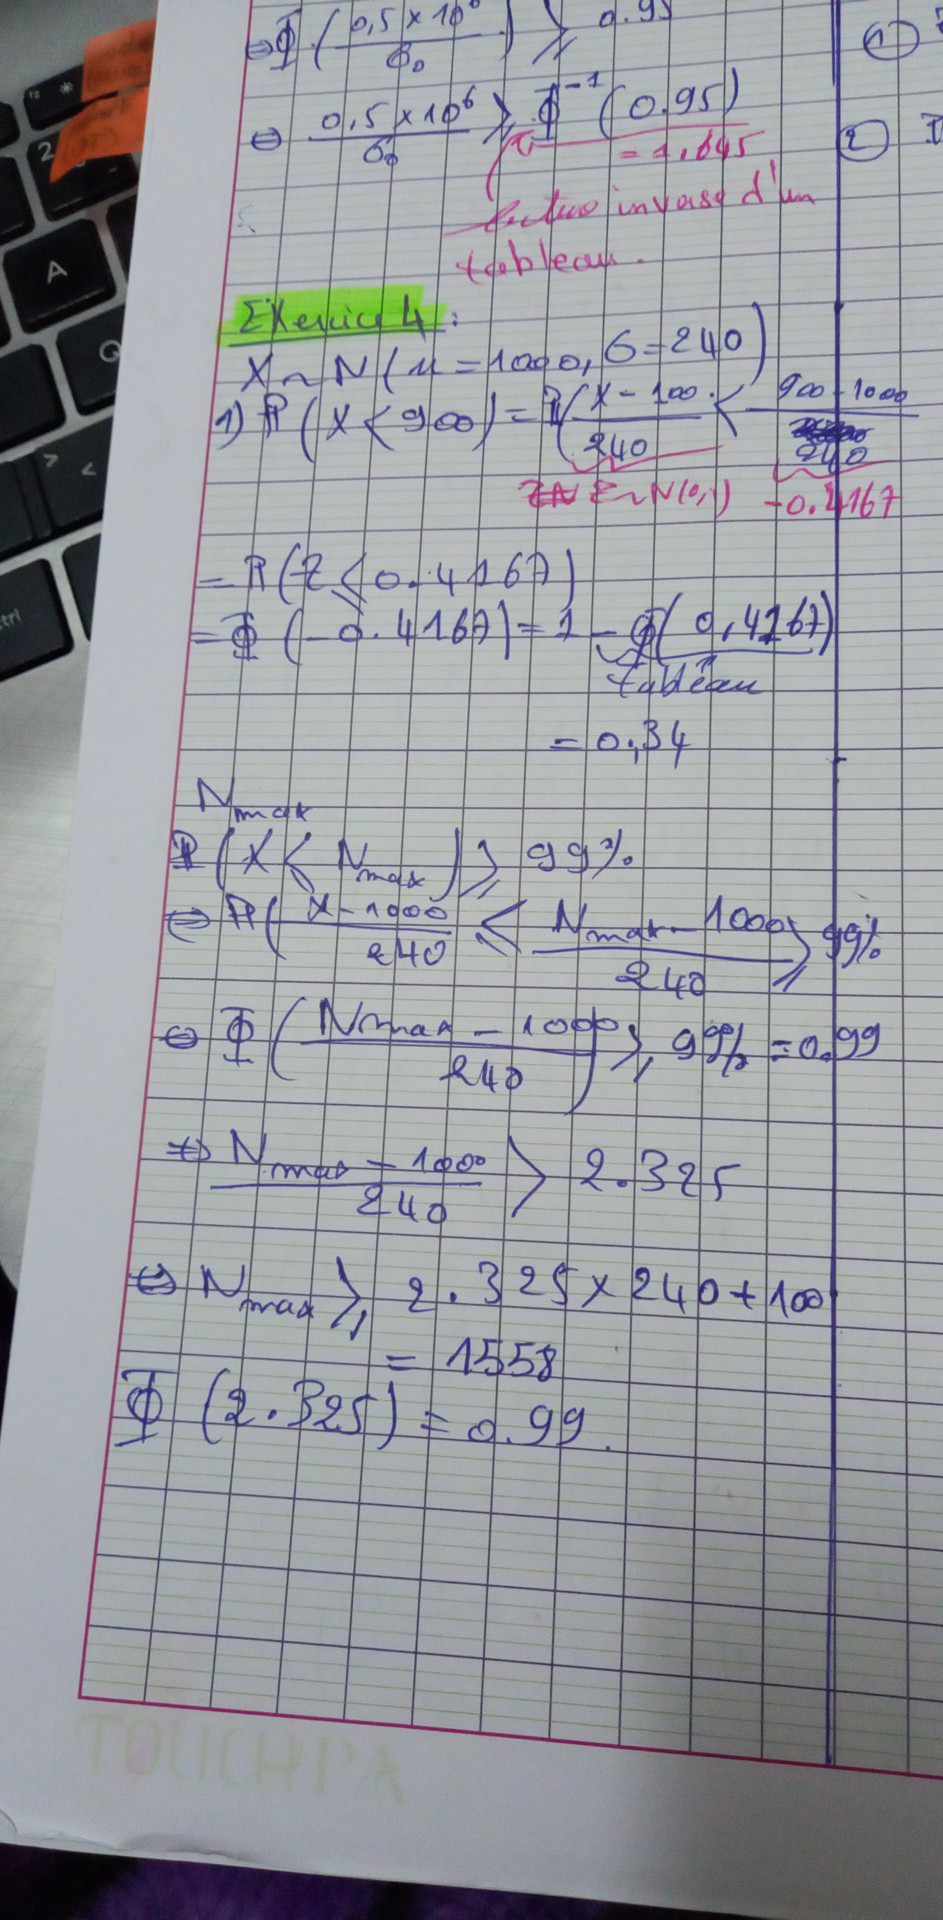 ⇔ Φ ( 0,5 × 10⁶ / σ₀ ) ≥ 0.95
⇔ 0,5 × 10⁶ / σ₀ ≥ Φ⁻¹ ( 0.95 )
= 1,645
lecture inverse d'un
tableau.
Exercice 4 :
X ~ N ( μ = 1000, σ = 240 )
1) P ( X < 900 ) = P ( X - 100 / 240 < 900 - 1000 / 240
Z ~ N(0,1) -0.4167
= P ( Z ≤ 0.4167 )
= Φ ( -0.4167 ) = 1 - Φ ( 0,4167 )
tableau
= 0,34
N max
P ( X < N max ) ≥ 99%
⇔ P ( X - 1000 / 240 ≤ N max - 1000 / 240 ≥ 99%
⇔ Φ ( N max - 1000 / 240 ) ≥ 99% = 0.99
⇔ N max - 1000 / 240 > 2.325
⇔ N max ≥ 2.325 × 240 + 100
= 1558
Φ ( 2.325 ) = 0.99.
1
2
A
Q